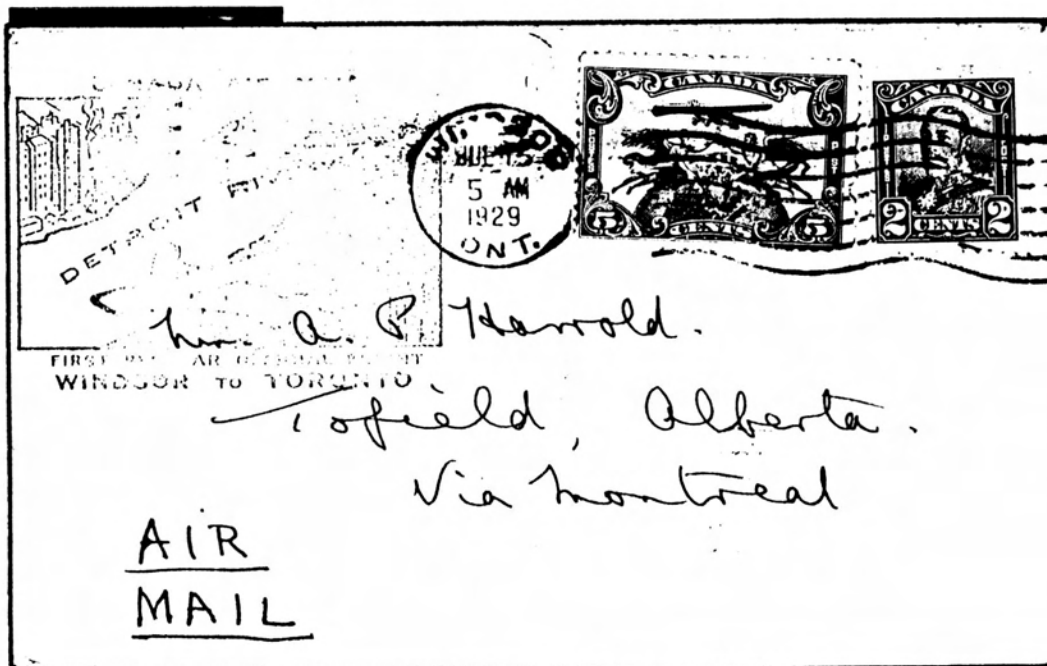 CANADA AIR MAIL
DETROIT RI
FIRST REGULAR OFFICIAL FLIGHT
WINDSOR TO TORONTO
WINDSOR
JUL 15
5 AM
1929
ONT.
CANADA
5 CENTS 5
CANADA
2 CENTS 2
Mr. A. P. Harrold.
Tofield, Alberta.
Via Montreal
AIR
MAIL